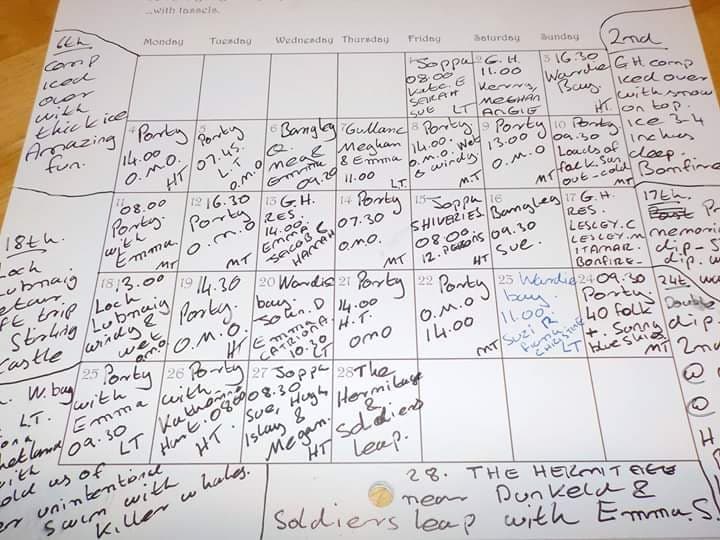 ...with tassels.
Monday Tuesday Wednesday Thursday Friday Saturday Sunday
6th
comp
iced
over
with
thick ice
Amazing
fun.
18th.
Loch
Lubnaig
etour
ft trip
Stirling
Castle
1 Joppa
08.00
Kate. E
SUE LT
2 G.H.
11.00
Kerry,
MEGHAN
ANGIE
3 16.30
Wardie
Bay.
HT
4 Porty
14.00
O.M.O.
HT
5 Porty
07.45.
L.T
O.M.O
6 Bangley
Q.
Meg &
Emma
09.20
7 Gullane
Meghan
& Emma
11.00
LT.
8 Porty
14.00
O.M.O. Wet
& windy.
MT
9 Porty
13.00
O.M.O
M.T
10 Porty
09.30
Loads of
folk. Sun
out-cold
MT
11
08.00
Porty.
with
Emma
MT
12 16.30
Porty
O.M.O
MT
13 G.H.
RES.
14.00.
EMMA.
JACOB &
HANNAH
14 Porty
07.30
O.M.O.
MT
15 Joppa
SHIVERIES.
08.00
HT
16 Bangley
09.30
Sue.
17 G.H.
RES.
LESLEY.C
LESLEY.M
ITAMAR.
BONFIRE-
18 13.00
Loch
Lubnaig
windy &
wet
O.M.O
19 14.30
Porty.
O.M.O.
HT
20 Wardie
bay.
Emma
CATRIONA.
10.30
LT
21 Porty
14.00
H.T.
OMO
22 Porty
O.M.O
14.00
MT
23 Wardie
bay
11.00.
Suzi R
CHRISTINE
LT
24 09.30
Porty
40 folk
+. Sunny
blue skies
MT
25 Porty
with
Emma
09.30
LT
26 Porty
with
Katharine
Hunt. 0800
HT.
27 Joppa
08.30
Sue, Hugh,
Islay &
Megan.
HT
28 The
Hermitage
&
Soldiers
leap.
2nd
GH comp
iced over
with snow
on top.
ice 3-4
inches
deep.
Bonfire
17th.
memoria
dip - S
dip. w
24th w
Double
dip.
2nd
@
@
W. bay
L.T.
with
old us of
unintentional
swim with
killer whales.
28. THE HERMITAGE
near Dunkeld &
Soldiers leap with Emma. S